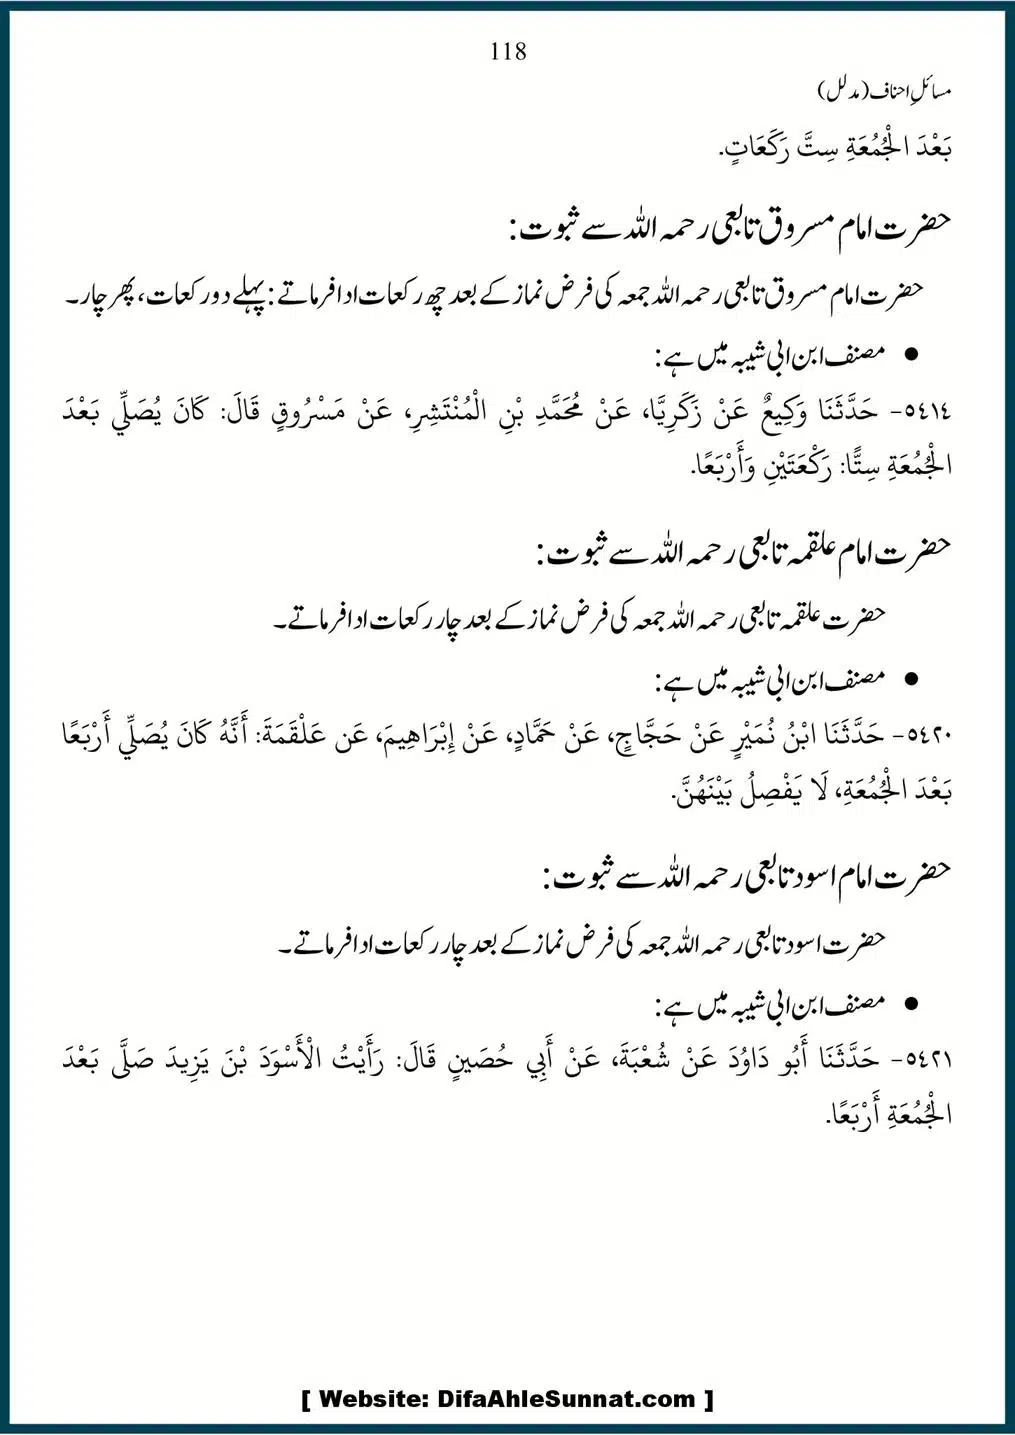 118
مسائلِ احناف (مدلل)
بَعْدَ الْجُمُعَةِ سِتَّ رَكَعَاتٍ.
حضرت امام مسروق تابعی رحمہ اللہ سے ثبوت:
حضرت امام مسروق تابعی رحمہ اللہ جمعہ کی فرض نماز کے بعد چھ رکعات ادا فرماتے: پہلے دو رکعات، پھر چار۔
• مصنف ابن ابی شیبہ میں ہے:
٥٤١٤- حَدَّثَنَا وَكِيعٌ عَنْ زَكَرِيَّا، عَنْ مُحَمَّدِ بْنِ الْمُنْتَشِرِ، عَنْ مَسْرُوقٍ قَالَ: كَانَ يُصَلِّي بَعْدَ
الْجُمُعَةِ سِتًّا: رَكْعَتَيْنِ وَأَرْبَعًا.
حضرت امام علقمہ تابعی رحمہ اللہ سے ثبوت:
حضرت علقمہ تابعی رحمہ اللہ جمعہ کی فرض نماز کے بعد چار رکعات ادا فرماتے۔
• مصنف ابن ابی شیبہ میں ہے:
٥٤٢٠- حَدَّثَنَا ابْنُ نُمَيْرٍ عَنْ حَجَّاجٍ، عَنْ حَمَّادٍ، عَنْ إِبْرَاهِيمَ، عَن عَلْقَمَةَ: أَنَّهُ كَانَ يُصَلِّي أَرْبَعًا
بَعْدَ الْجُمُعَةِ، لَا يَفْصِلُ بَيْنَهُنَّ.
حضرت امام اسود تابعی رحمہ اللہ سے ثبوت:
حضرت اسود تابعی رحمہ اللہ جمعہ کی فرض نماز کے بعد چار رکعات ادا فرماتے۔
• مصنف ابن ابی شیبہ میں ہے:
٥٤٢١- حَدَّثَنَا أَبُو دَاوُدَ عَنْ شُعْبَةَ، عَنْ أَبِي حُصَينٍ قَالَ: رَأَيْتُ الْأَسْوَدَ بْنَ يَزِيدَ صَلَّى بَعْدَ
الْجُمُعَةِ أَرْبَعًا.
[ Website: DifaAhleSunnat.com ]